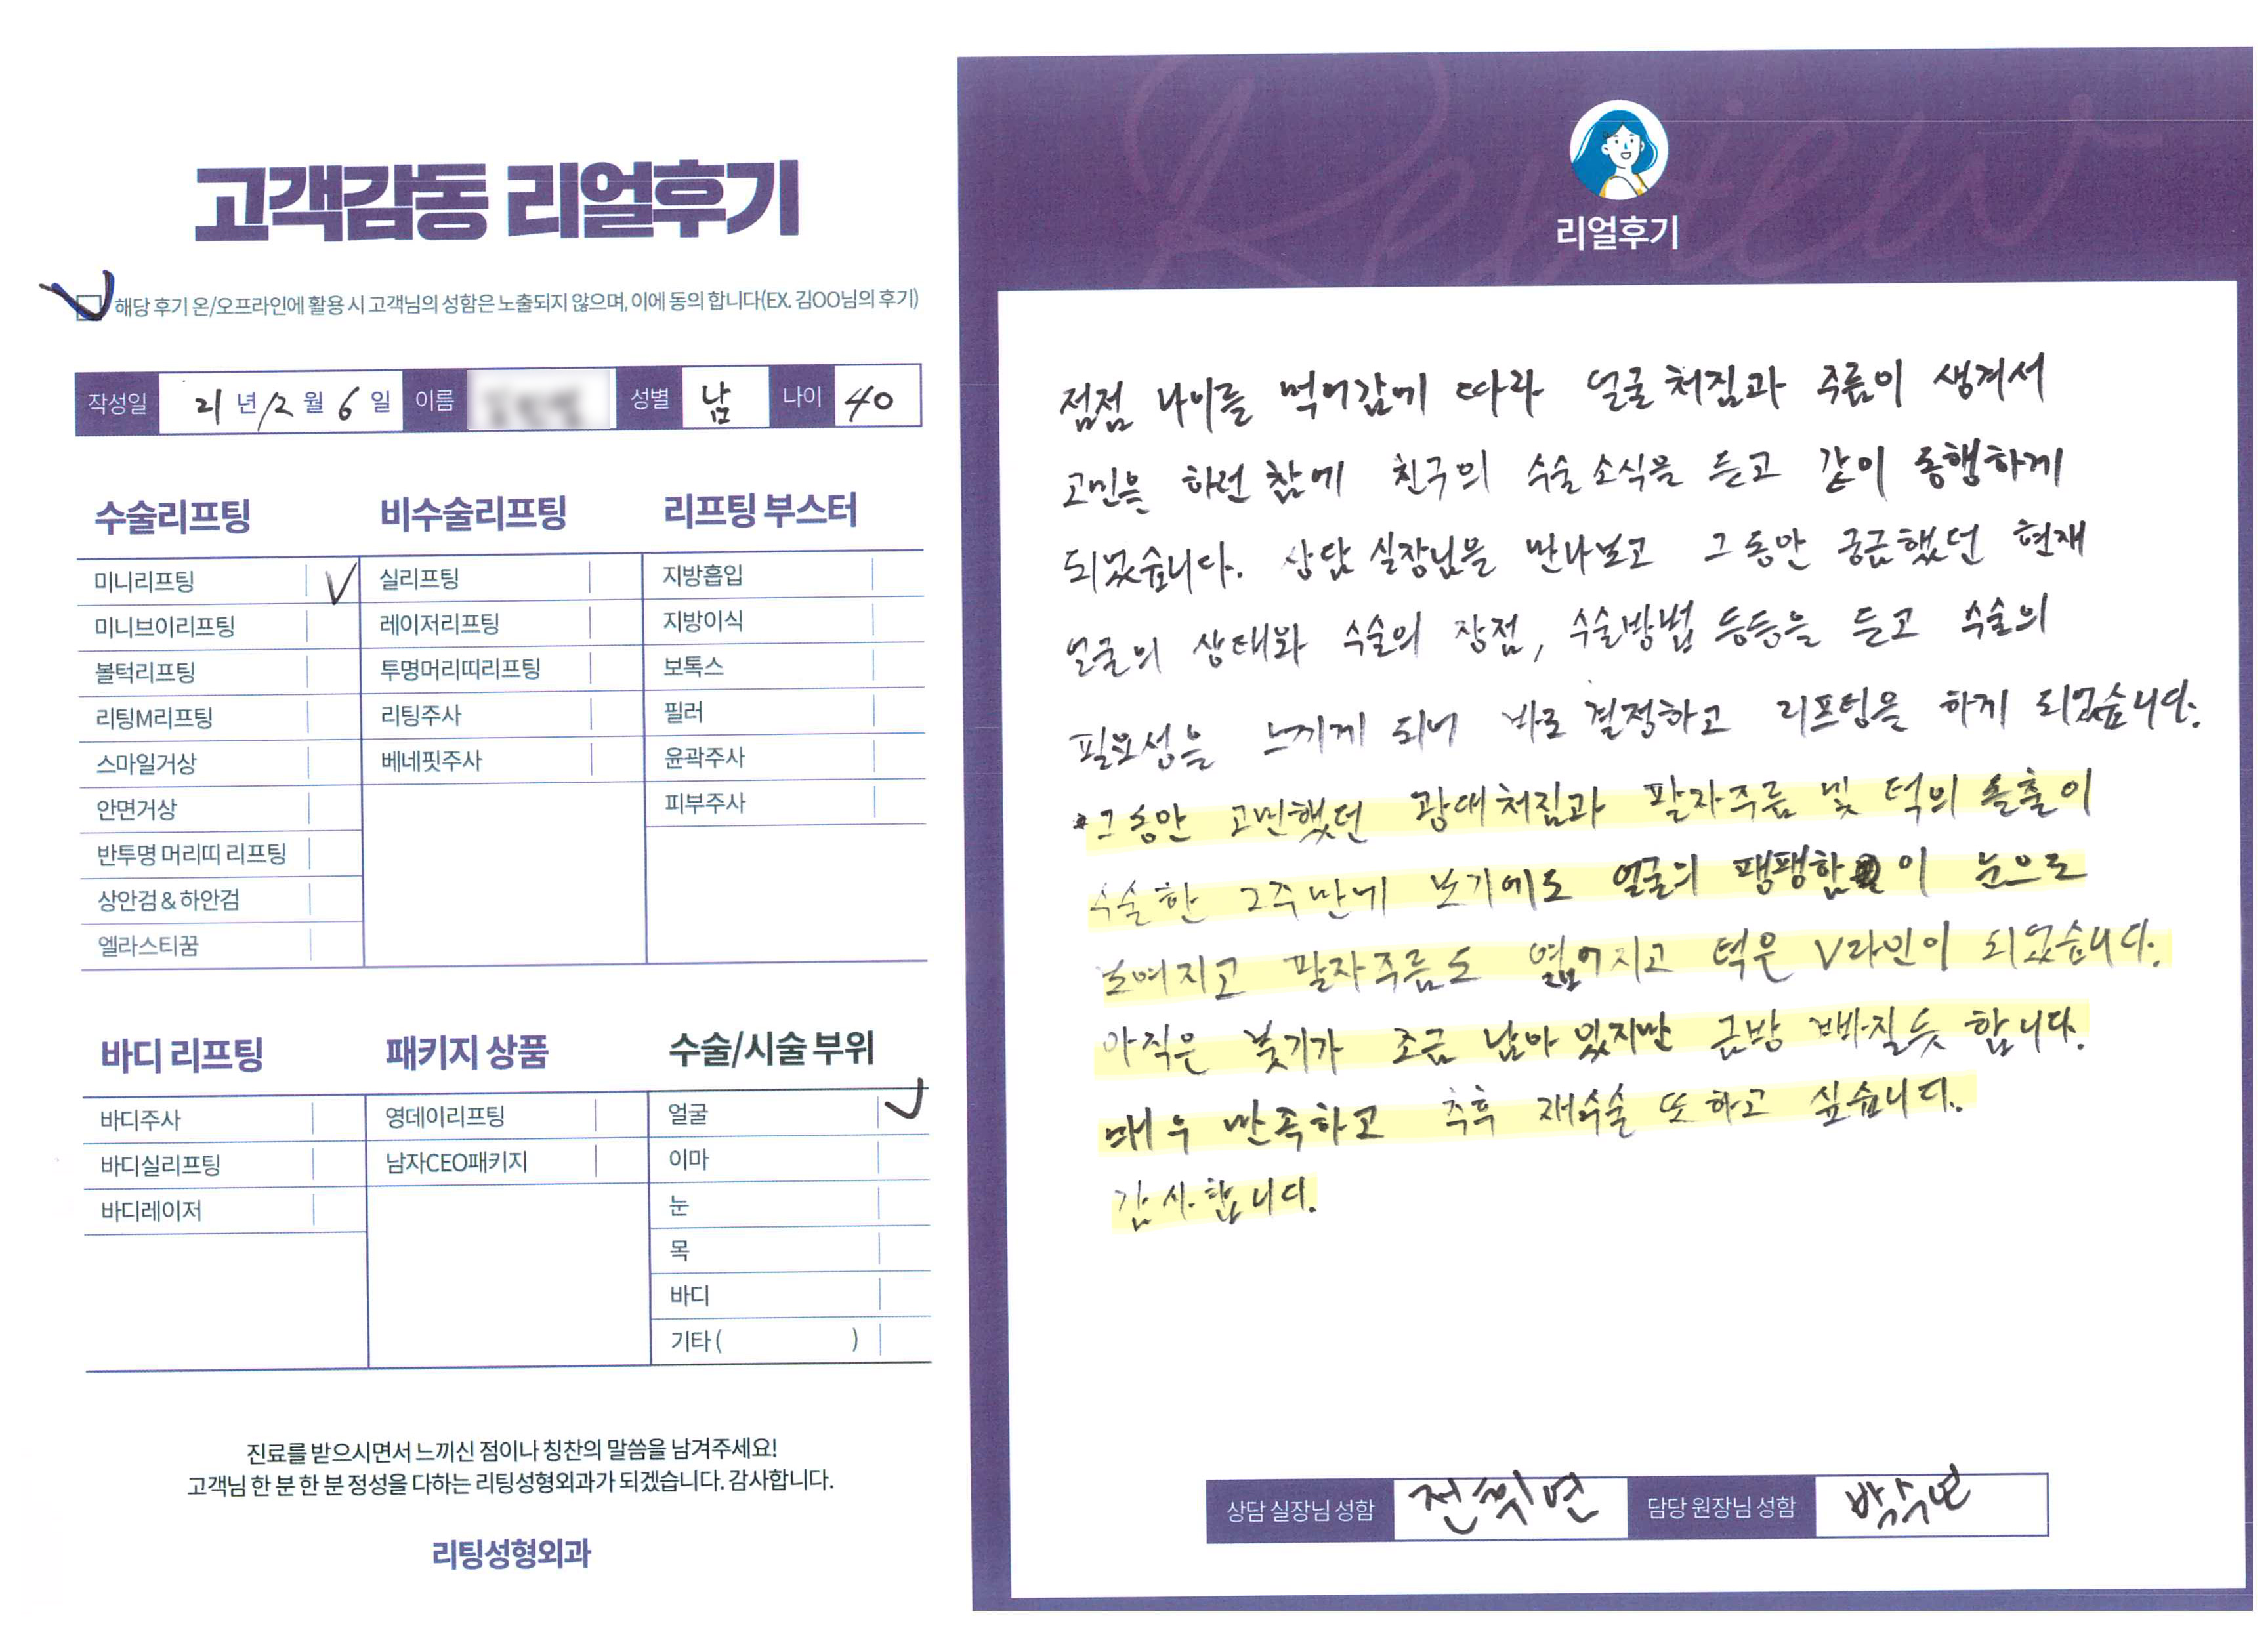 고객감동 리얼후기
해당 후기 온/오프라인에 활용 시 고객님의 성함은 노출되지 않으며, 이에 동의 합니다(EX. 김OO님의 후기)
작성일 21년 12월 6일 이름 성별 남 나이 40
수술리프팅
미니리프팅 V
미니브이리프팅
볼턱리프팅
리팅M리프팅
스마일거상
안면거상
반투명 머리띠 리프팅
상안검 & 하안검
엘라스티꿈
비수술리프팅
실리프팅
레이저리프팅
투명머리띠리프팅
리팅주사
베네핏주사
리프팅 부스터
지방흡입
지방이식
보톡스
필러
윤곽주사
피부주사
바디 리프팅
바디주사
바디실리프팅
바디레이저
패키지 상품
영데이리프팅
남자CEO패키지
수술/시술 부위
얼굴
이마
눈
목
바디
기타 ( )
진료를 받으시면서 느끼신 점이나 칭찬의 말씀을 남겨주세요!
고객님 한 분 한 분 정성을 다하는 리팅성형외과가 되겠습니다. 감사합니다.
리팅성형외과
Review
리얼후기
점점 나이를 먹어감에 따라 얼굴 처짐과 주름이 생겨서
고민을 하던 참에 친구의 수술 소식을 듣고 같이 동행하게
되었습니다. 상담 실장님을 만나보고 그동안 궁금했던 현재
얼굴의 상태와 수술의 장점, 수술방법 등등을 듣고 수술의
필요성을 느끼게 되어 바로 결정하고 리프팅을 하게 되었습니다.
*그동안 고민했던 광대처짐과 팔자주름 및 턱의 돌출이
수술한 2주만에 보기에도 얼굴의 팽팽함이 눈으로
보여지고 팔자주름도 옅어지고 턱은 V라인이 되었습니다.
아직은 붓기가 조금 남아 있지만 금방 빠질듯 합니다.
매우 만족하고 추후 재수술 또 하고 싶습니다.
감사합니다.
상담 실장님 성함 담당 원장님 성함 박수연